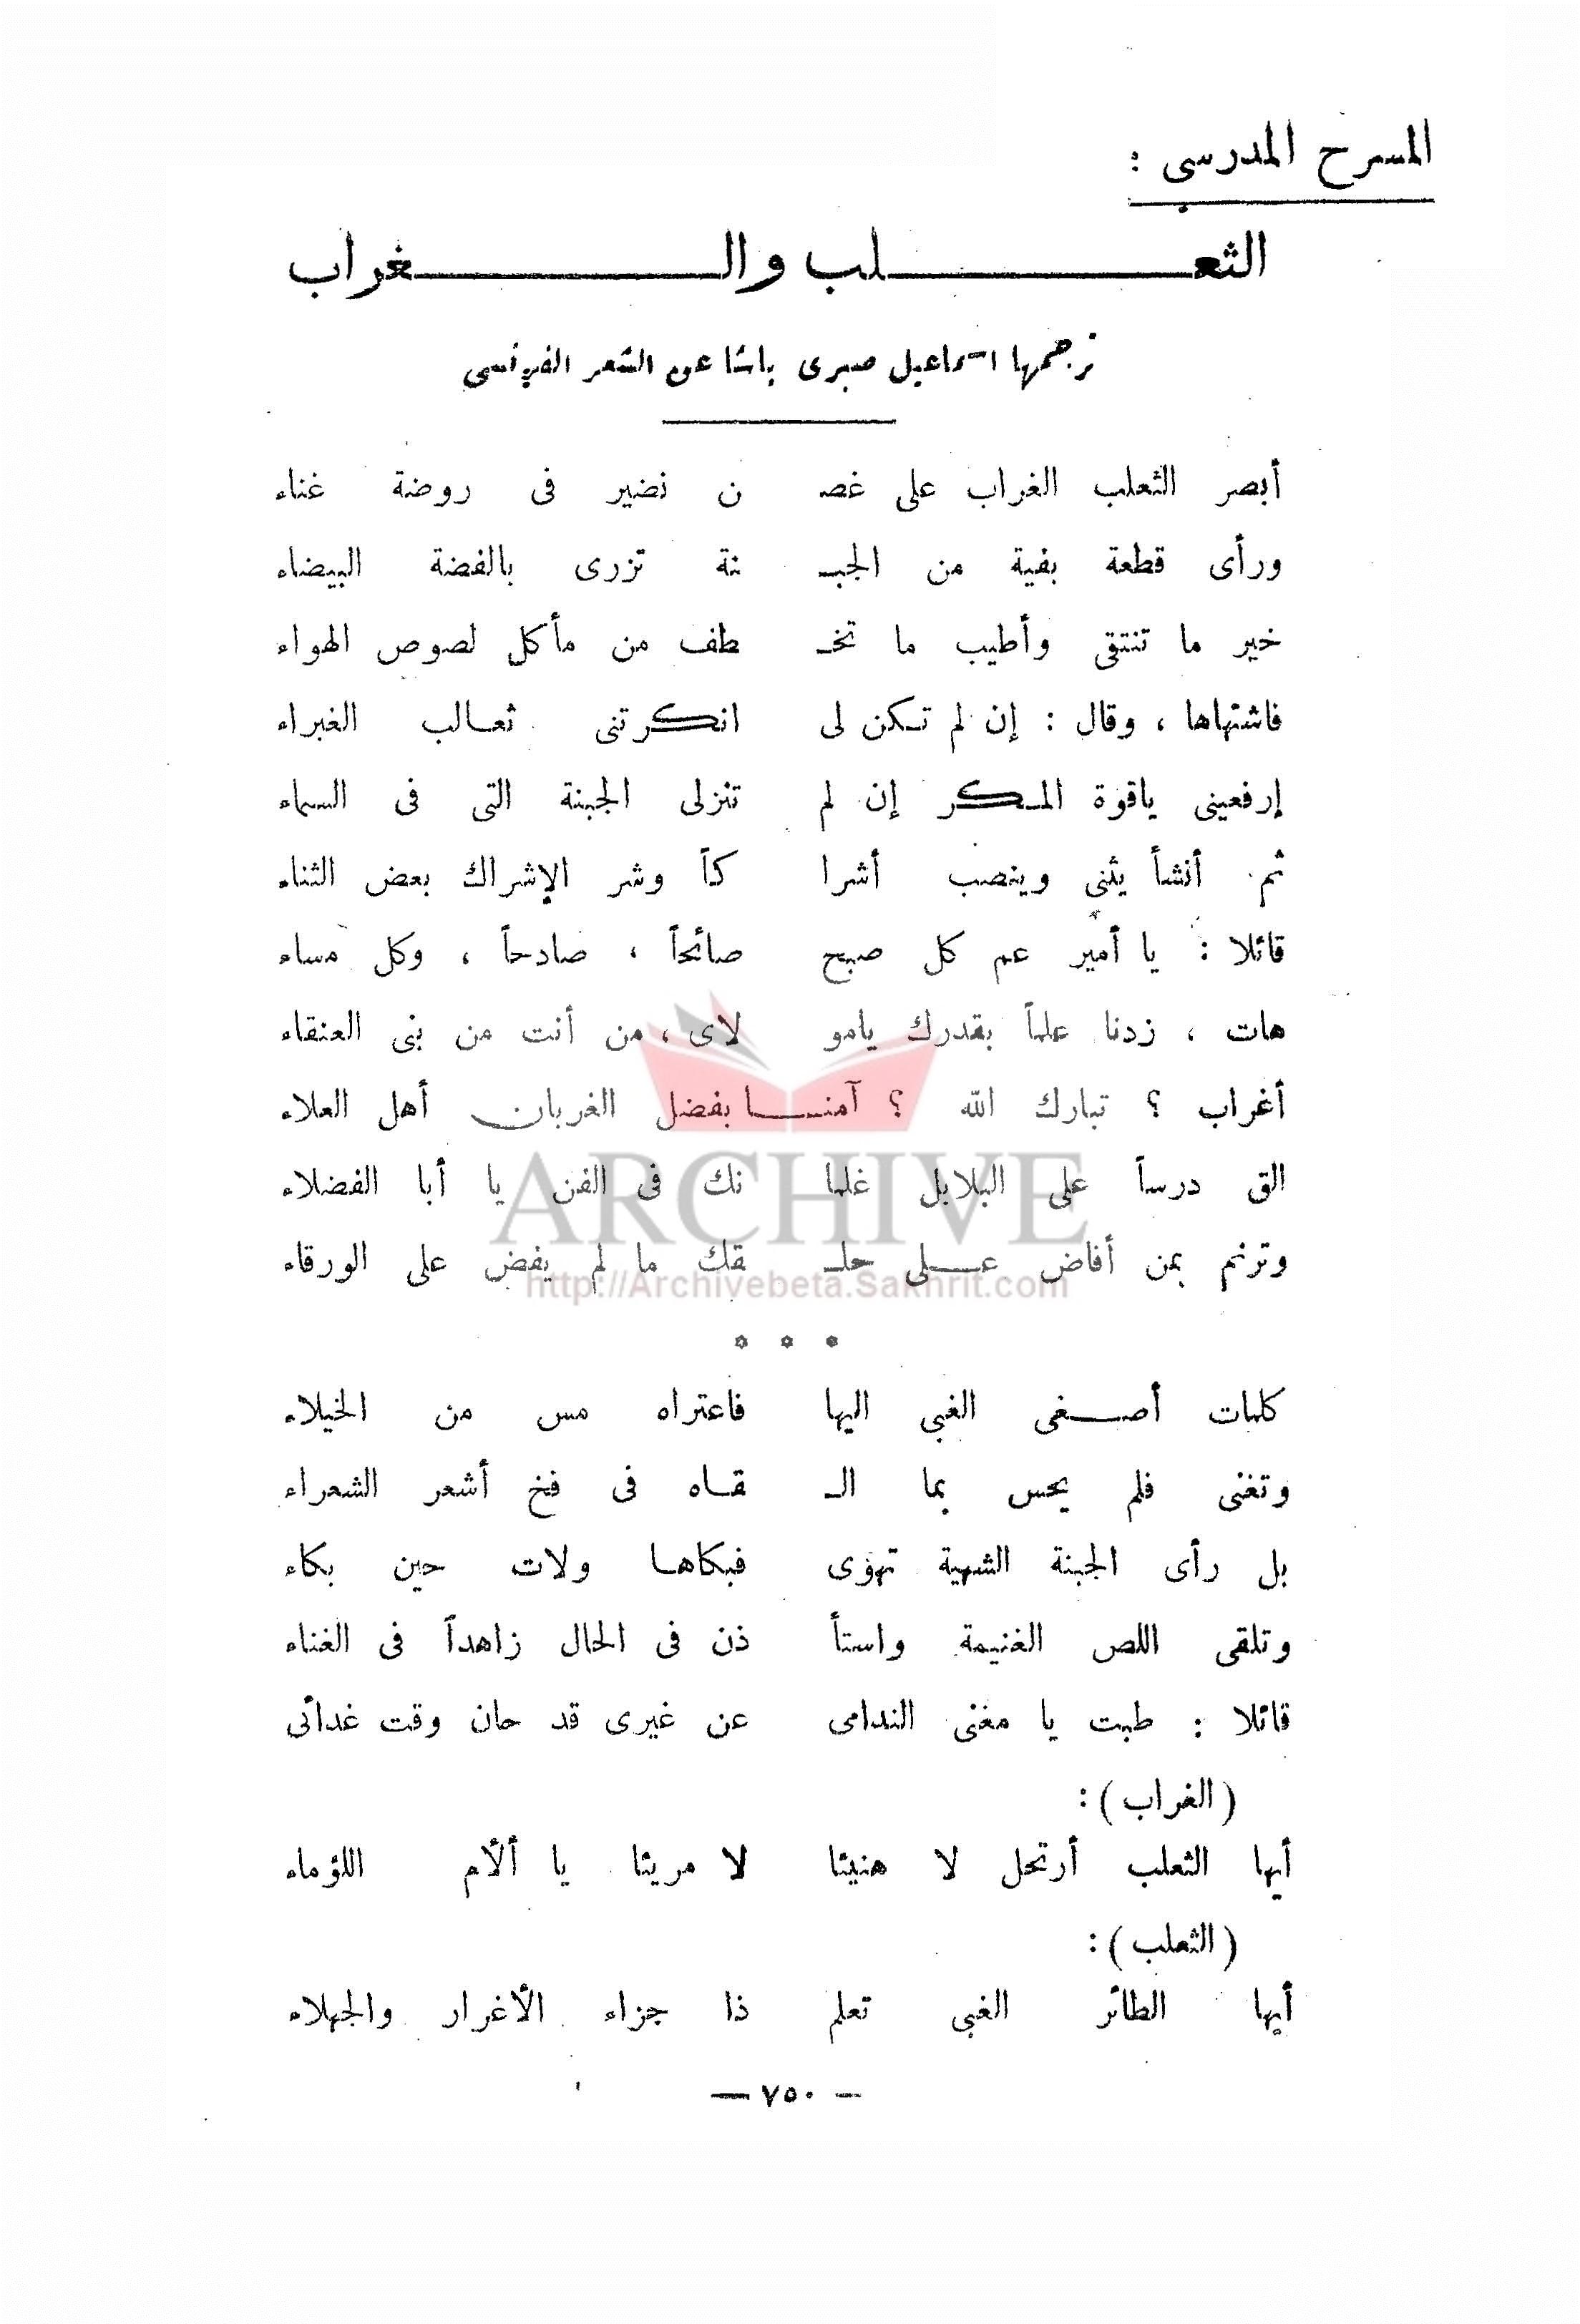 المسرح المدرسى :
الثعلب والغراب
ترجمها اسماعيل صبرى باشا عن الشعر الفرنسى
أبصر الثعلب الغراب على غصـ ن نضير فى روضة غناء
ورأى قطعة بفية من الجبـ نة تزرى بالفضة البيضاء
خير ما تنتقى وأطيب ما تخـ طف من مأكل لصوص الهواء
فاشتهاها ، وقال : إن لم تكن لى انكرتنى ثعالب الغبراء
إرفعينى ياقوة المكر إن لم تنزلى الجبنة التى فى السماء
ثم أنشأ يثنى وينصب أشرا كاً وشر الإشراك بعض الثناء
قائلا : يا أمير عم كل صبح صائحاً ، صادحاً ، وكل مساء
هات ، زدنا علماً بقدرك يامو لاى ، من أنت من بنى العنقاء
أغراب ؟ تبارك الله ؟ آمنا بفضل الغربان أهل العلاء
الق درساً على البلابل غلما نك فى الفن يا أبا الفضلاء
وترنم بمن أفاض على حلـ قك ما لم يفض على الورقاء
* * *
كلمات أصغى الغبى اليها فاعتراه مس من الخيلاء
وتغنى فلم يحس بما الـ قاه فى فخ أشعر الشعراء
بل رأى الجبنة الشهية تهوى فبكاها ولات حين بكاء
وتلقى اللص الغنيمة واستأ ذن فى الحال زاهداً فى الغناء
قائلا : طبت يا مغنى الندامى عن غيرى قد حان وقت غدائى
(الغراب) :
أيها الثعلب أرتحل لا هنيئا لا مريئا يا ألأم اللؤماء
(الثعلب) :
أيها الطائر الغبى تعلم ذا جزاء الأغرار والجهلاء
— ٧٥٠ —
ARCHIVE
http://Archivebeta.Sakhrit.com